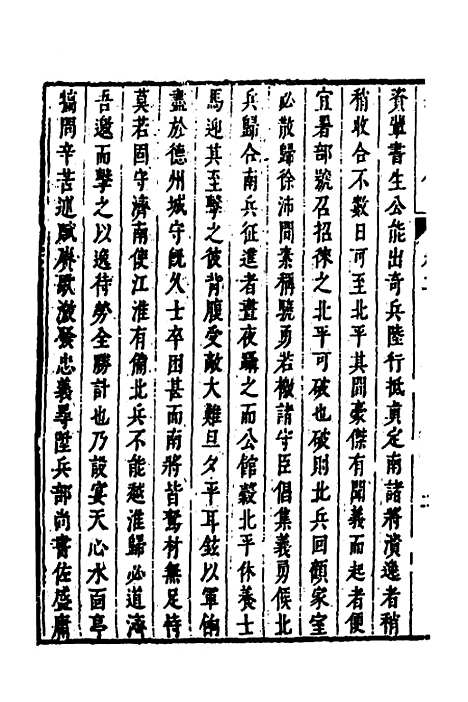 資輩書生公能出奇兵陸行抵真定南諸將潰逸者稍
稍收合不數日可至北平其間豪傑有聞義而起者便
宜署部號召招徠之北平可破也破則北兵回顧家室
必散歸徐沛間素稱驍勇若檄諸守臣倡集義勇俟北
兵歸合南兵征進者晝夜躡之而公館穀北平休養士
馬迎其至擊之彼背腹受敵大難旦夕平耳鉉以軍餉
盡於德州城守旣久士卒困甚而南將皆駑材無足恃
莫若固守濟南使江淮有備北兵不能越淮歸必道濟
吾邀而擊之以逸待勞全勝計也乃設宴天心水面亭
犒問辛苦述賦賡歌激發忠義尋陞兵部尚書佐盛庸